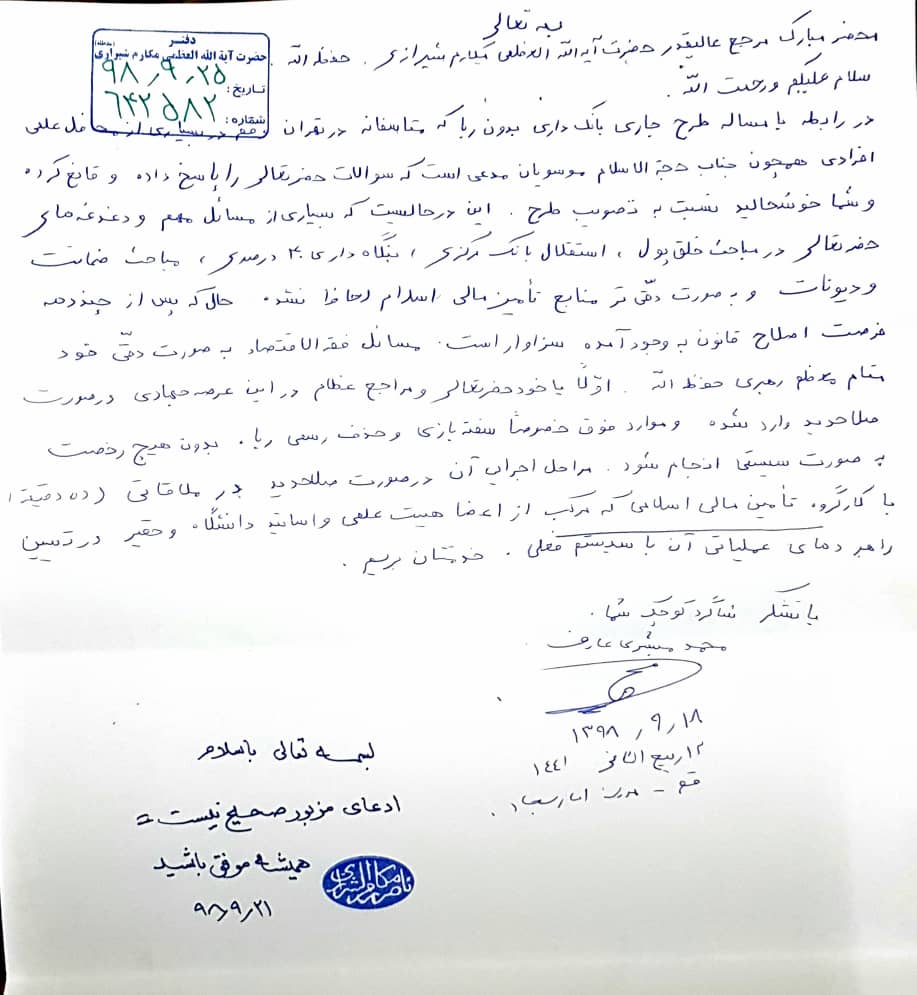 به تعالی
محضر مبارک مرجع عالیقدر حضرت آیه الله العظمی مکارم شیرازی . حفظه الله .
دفتر
حضرت آیة الله العظمی مکارم شیرازی (مدظله)
تاریخ: ۹۸٫۹٫۲۵
شماره: ۶۴۲۵۸۲
سلام علیکم و رحمت الله .
در رابطه با مساله طرح جاری بانک داری بدون ربا که متاسفانه در تهران قم در بسیاری از محافل علمی
افرادی همچون جناب حجة الاسلام موسویان مدعی است که سوالات حضرتعالی را پاسخ داده و قانع کرده
و شما خوشحالید نسبت به تصویب طرح . این در حالیست که بسیاری از مسائل مهم و دغدغه های
حضرتعالی در مباحث خلق پول ، استقلال بانک مرکزی ، بنگاه داری ۴۰ درصدی ، مباحث ضمانت
و دیونات و به صورت دقّی تر منابع تأمین مالی اسلام لحاظ نشده . حال که پس از چند دهه
فرصت اصلاح قانون به وجود آمده سزاوار است . مسائل فقه الاقتصاد به صورت دقّی خود
مقام معظم رهبری حفظه الله . اوّلاً با خود حضرتعالی و مراجع عظام در این عرصه جهادی در صورت
صلاحدید وارد شده و موارد فوق خصوصاً سفته بازی و حذف رسمی ربا . بدون هیچ رخصت
به صورت سیستمی انجام شود . مراحل اجرایی آن در صورت صلاحدید در ملاقاتی (ده دقیقه)
با کارگروه تأمین مالی اسلامی که مرکب از اعضا هیئت علمی و اساتید دانشگاه و حقیر در تبیین
راهبردهای عملیاتی آن با سیستم فعلی . خدمتتان برسیم .
با تشکر شاگرد کوچک شما .
محمد مبشری عارف
۱۳۹۸٫۹٫۱۸
۱۲ ربیع الثانی ۱۴۴۱
قم - مدرسه امام سجاد .
بسمه تعالی باسلام
ادعای مزبور صحیح نیست =
همیشه موفق باشید
ناصر مکارم الشیرازی
۹۸٫۹٫۲۱